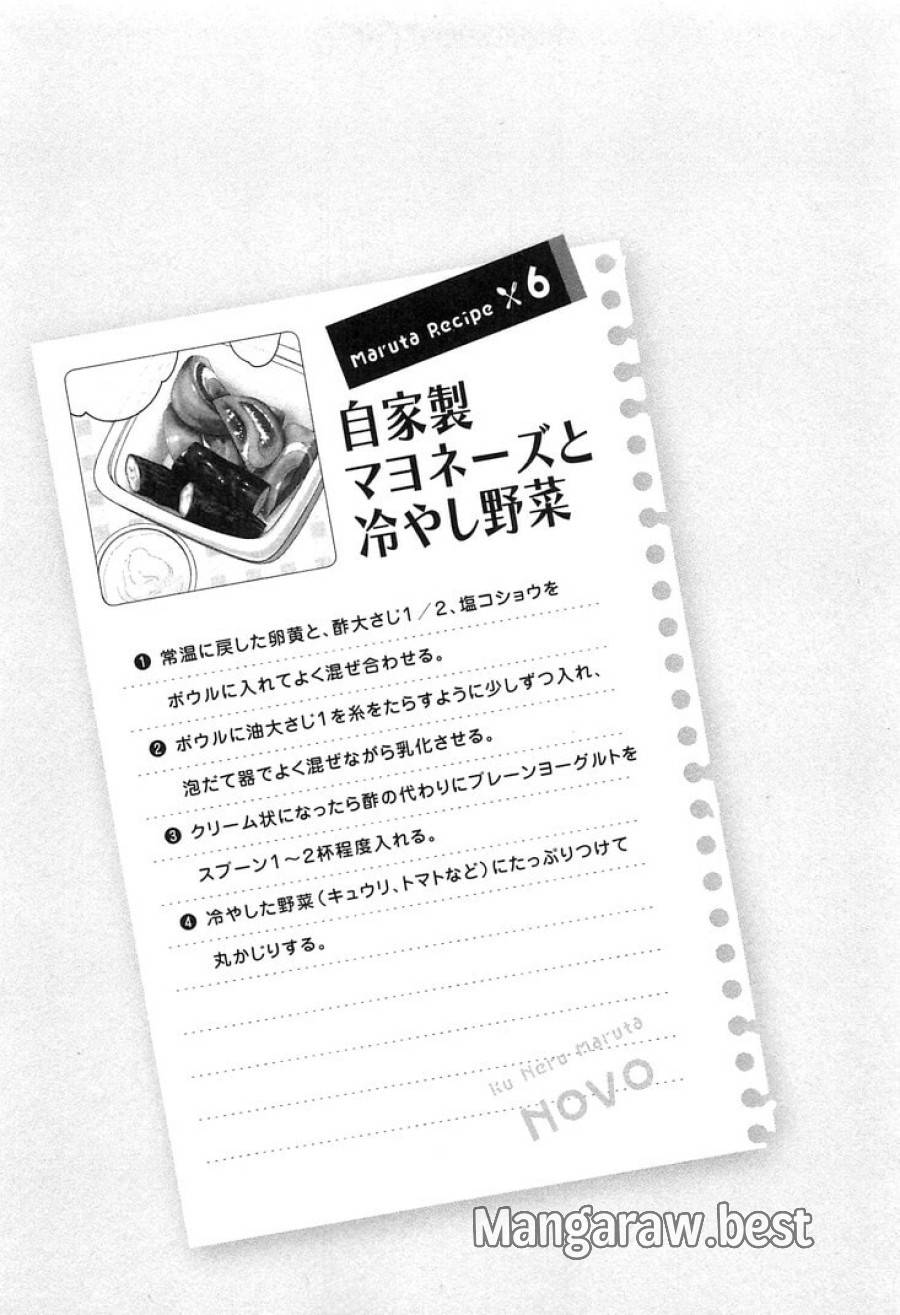 Maruta Recipe 6
自家製
マヨネーズと
冷やし野菜
❶ 常温に戻した卵黄と、酢大さじ1/2、塩コショウを
ボウルに入れてよく混ぜ合わせる。
❷ ボウルに油大さじ1を糸をたらすように少しずつ入れ、
泡だて器でよく混ぜながら乳化させる。
❸ クリーム状になったら酢の代わりにプレーンヨーグルトを
スプーン1～2杯程度入れる。
❹ 冷やした野菜（キュウリ、トマトなど）にたっぷりつけて
丸かじりする。
Ku Neru Maruta
NOVO
Mangaraw.best